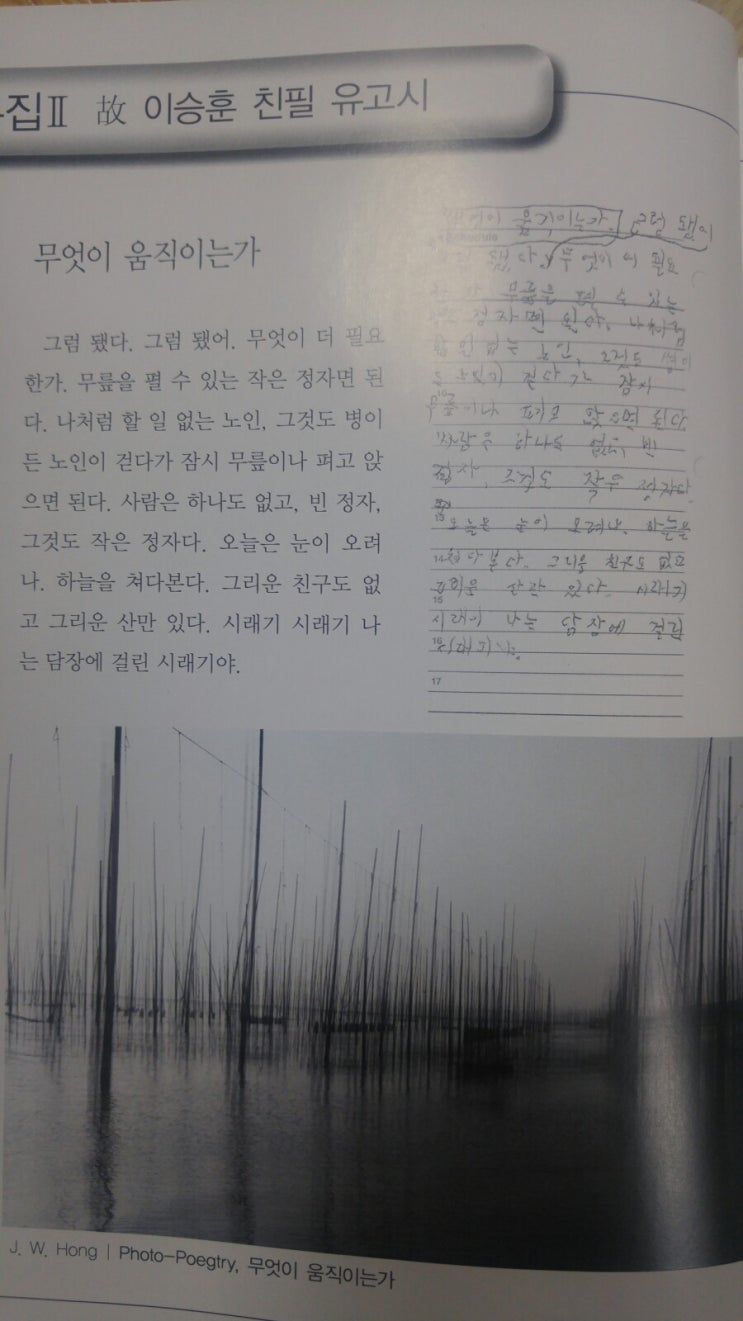 집Ⅱ 故 이승훈 친필 유고시
무엇이 움직이는가
그럼 됐다. 그럼 됐어. 무엇이 더 필요
한가. 무릎을 펼 수 있는 작은 정자면 된
다. 나처럼 할 일 없는 노인, 그것도 병이
든 노인이 걷다가 잠시 무릎이나 펴고 앉
으면 된다. 사람은 하나도 없고, 빈 정자,
그것도 작은 정자다. 오늘은 눈이 오려
나. 하늘을 쳐다본다. 그리운 친구도 없
고 그리운 산만 있다. 시래기 시래기 나
는 담장에 걸린 시래기야.
움직이는가. 그럼 됐어
됐다. 무엇이 더 필요
무릎을 펼 수 있는
정자면 된다. 나처럼
할 일 없는 노인, 그것도 병이
걷다가 잠시
무릎이나 펴고 앉으면 된다.
사람은 하나도 없고, 빈
정자, 그것도 작은 정자다.
오늘은 눈이 오려나. 하늘을
14 쳐다본다. 그리운 친구도 없고
그리운 산만 있다. 시래기
15
시래기 나는 담장에 걸린
16 시래기야.
17
J. W. Hong | Photo-Poegtry, 무엇이 움직이는가